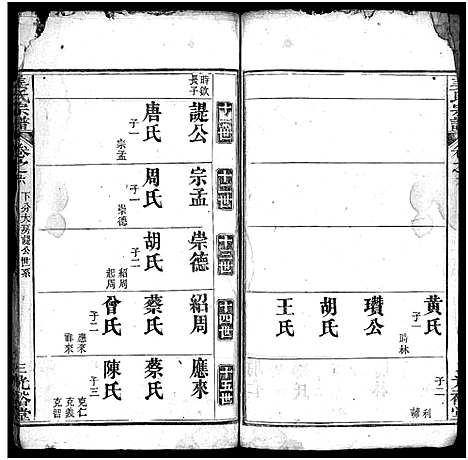 黄氏
子一
時林
瓚公
胡氏
王氏
子二
利
十一世
時欽長子
諟公
唐氏
子一
宗孟
十二世
宗孟
周氏
子一
崇德
十三世
崇德
胡氏
子二
紹周
起周
十四世
紹周
蔡氏
曾氏
子二
應來
十五世
應來
蔡氏
陳氏
子三
克仁
克義
克智
姜氏宗譜
卷之
下分大房諟公世系
三
光裕堂